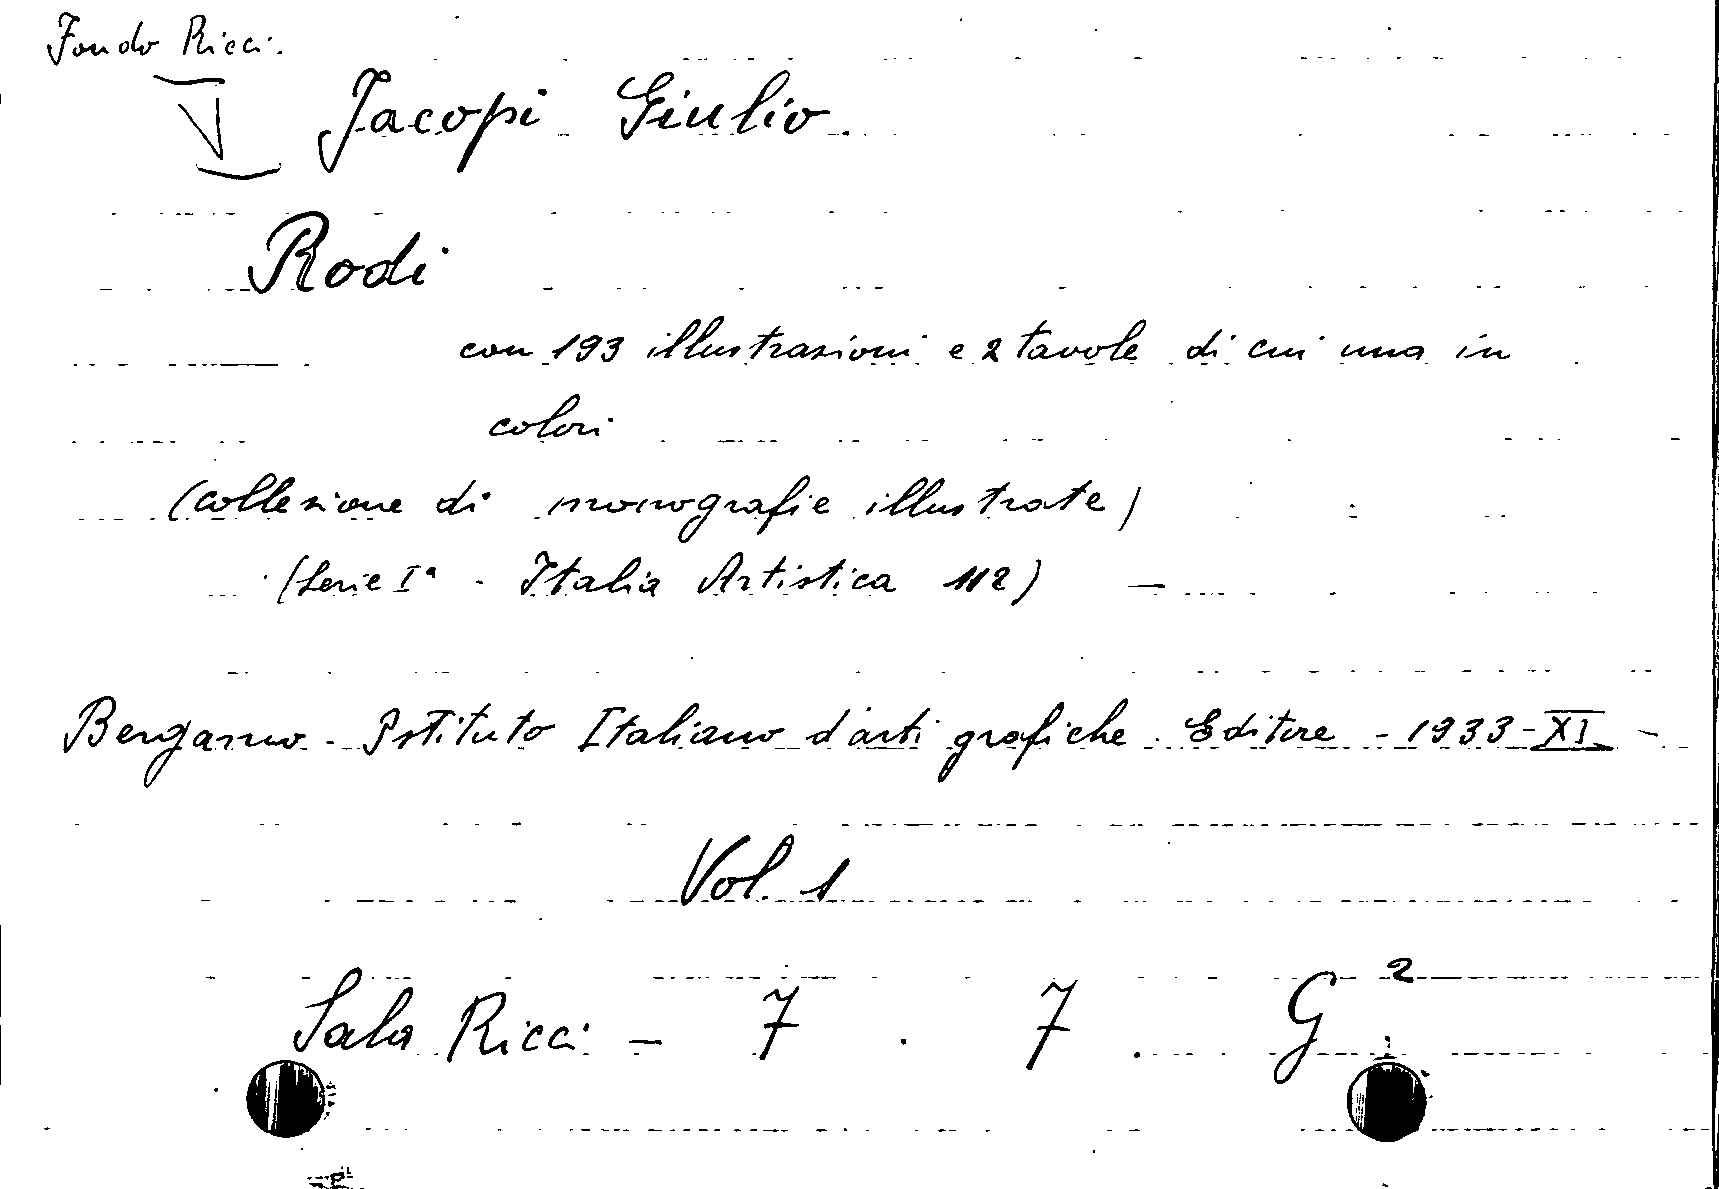 Fondo Ricci.
Jacopi Giulio.
Rodi
con 193 illustrazioni e 2 tavole di cui una in
colori
(collezione di monografie illustrate)
(Serie Iª - Italia Artistica 112) —
Bergamo - Istituto Italiano d'arti grafiche. Editore - 1933 - XI -
Vol. 1
Sala Ricci - 7 . 7 . G 2